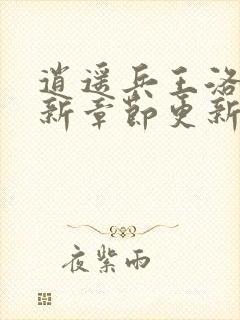 逍遥兵王洛
新章节更新
夜紫雨